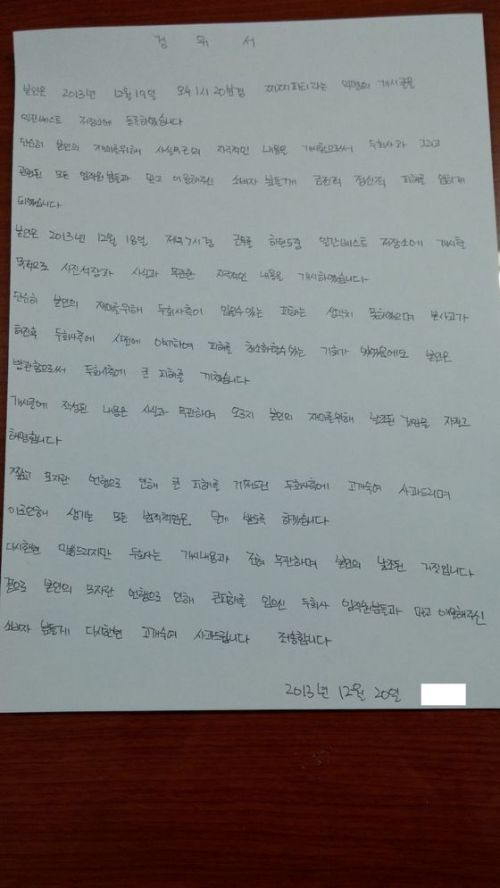 경 위 서
본인은 2013년 12월 19일 오후 1시 20분경 찌찌파티라는 익명의 게시글을
일간베스트 저장소에 등록하였습니다
단순히 본인의 재미를위해 사실무근의 자극적인 내용을 게시함으로써 두회사과 그리고
관련된 모든 임직원분들과 믿고 이용해주신 소비자 분들게 금전적 정신적 피해를 입히게
되었습니다
본인은 2013년 12월 18일 저녁 7시경 근무를 하던도중 일간베스트 저장소에 게시할
목적으로 사진석장과 사실과 무관한 자극적인 내용을 게시하였습니다
단순히 본인의 재미를위해 두회사측이 입을수있는 피해는 생각지 못하였으며 본사고가
터진후 두회사측에 사전에 얘기하여 피해를 최소화할수있는 기회가 있었음에도 본인은
방관함으로써 두회사측에 큰 피해를 끼쳤습니다
게시글에 작성된 내용은 사실과 무관하며 오로지 본인의 재미를위해 날조된 거짓을 자작고
해명합니다
짧고 모자란 언행으로 인해 큰 피해를 끼쳐드린 두회사측에 고개숙여 사과드리며
이로인해 생기는 모든 법적책임은 달게 받도록 하겠습니다
다시한번 말씀드리지만 두회사는 게시내용과 전혀 무관하며 본인의 날조된 거짓입니다
끝으로 본인의 모자란 언행으로 인해 큰피해를 입으신 두회사 임직원분들과 믿고 이용해주신
소비자 분들게 다시한번 고개숙여 사과드립니다 죄송합니다
2013년 12월 20일